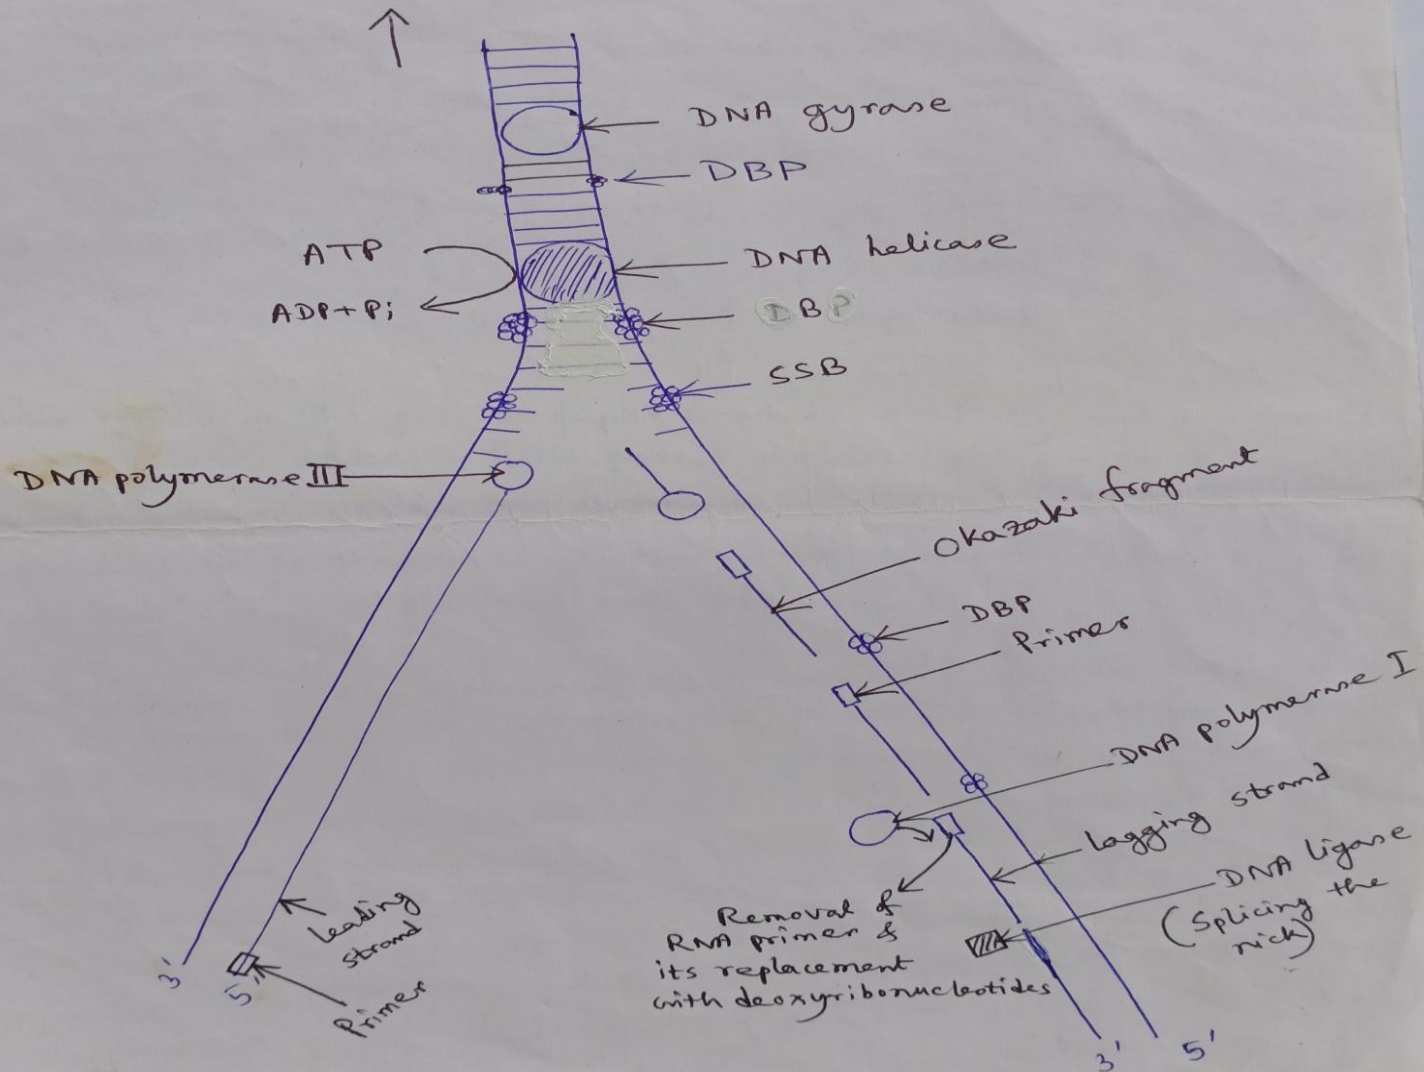 DNA gyrase
DBP
ATP
DNA helicase
ADP+Pi
DBP
SSB
DNA polymerase III
Okazaki fragment
DBP
Primer
DNA polymerase I
lagging strand
DNA ligase
(Splicing the
nick)
Removal of
RNA primer &
its replacement
with deoxyribonucleotides
leading
strand
3'
5'
Primer
3'
5'